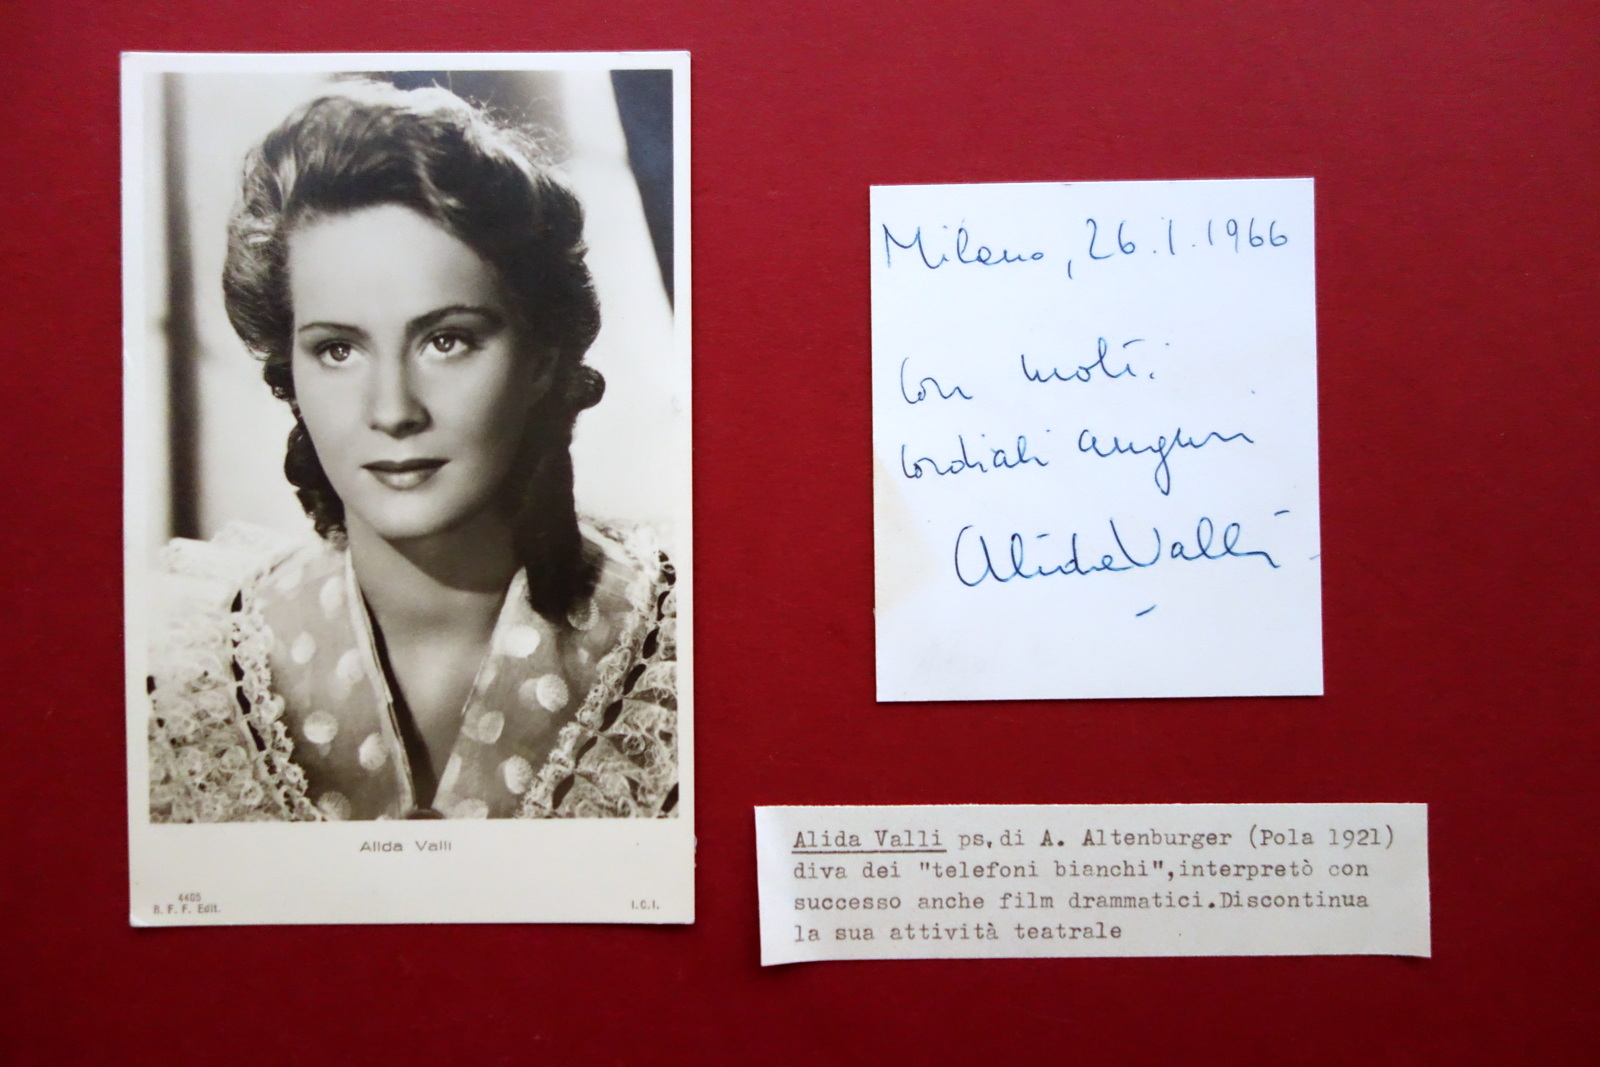 Alida Valli
4405
B. F. F. Edit.
I.C.I.
Milano, 26.1.1966
Con molti
cordiali auguri
Alida Valli
Alida Valli ps,di A. Altenburger (Pola 1921)
diva dei "telefoni bianchi",interpretò con
successo anche film drammatici.Discontinua
la sua attività teatrale